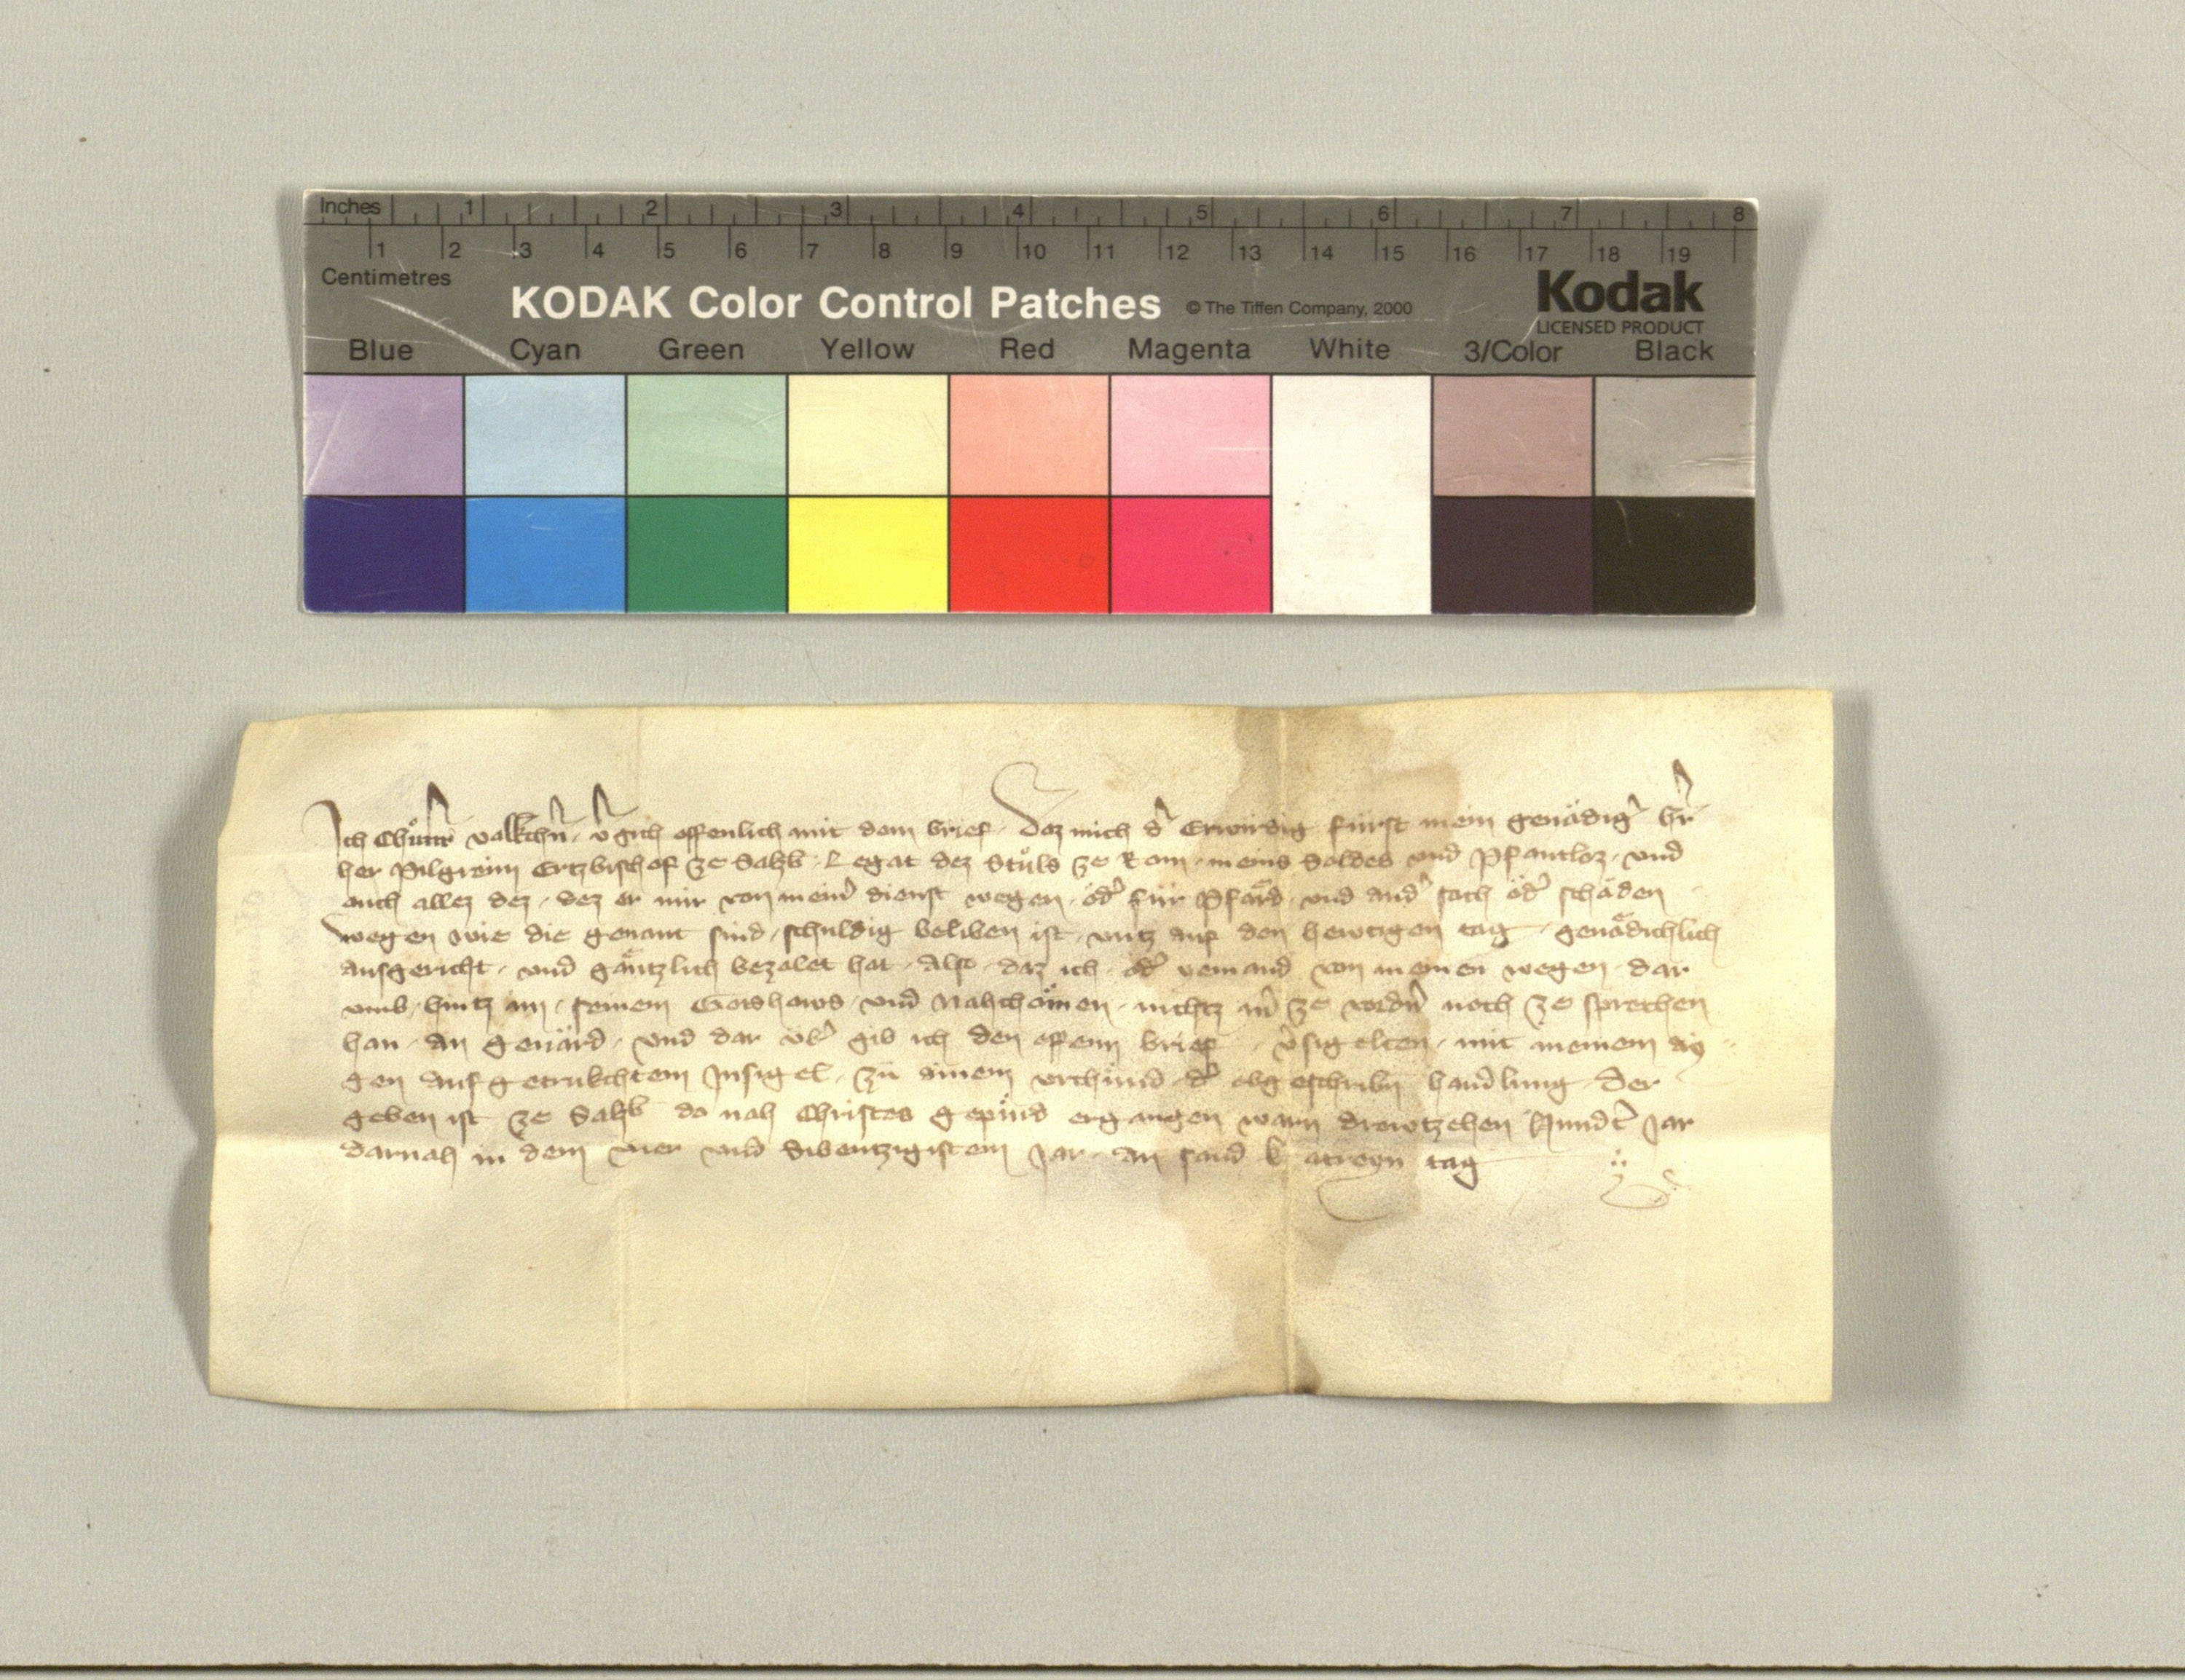 Inches 1 2 3 4 5 6 7 8
1 2 3 4 5 6 7 8 9 10 11 12 13 14 15 16 17 18 19
Centimetres
KODAK Color Control Patches © The Tiffen Company, 2000 Kodak
LICENSED PRODUCT
Blue Cyan Green Yellow Red Magenta White 3/Color Black
Ich offenlich mit dem brief Daz mich d' Erwirdig fürst mein genädig' h'r
her Pilgreim Ertzbischof ze Salzb Legat dez Stůls ze Rom meins Soldes vnd Pfantloz vnd
auch allez dez dez er mir von mein' dienst wegen od' für Pfärd vnd and' sach od' schäden
wegen wie die genant sind schuldig beliben ist vntz auf den hewtigen tag genädichlich
ausgericht vnd gäntzlich bezalet hat Also daz ich od' yemand von meinen wegen dar
vmb hintz im seinem Gotshaws vnd Nahchömen nichtz m' ze vordn' noch ze sprechen
han An geuärd vnd dar vb' gib ich den offenn brief v'sigelten mit meinem ay
gen aufgetrukchtem Insigel zu einem vrchünd d' obgeschribn handlung Der
geben ist ze Salzb do nah Christes gepürd ergangen warn drewtzehen Hund't Jar
darnah in dem vier vnd Sibentzigistem Jar An sand Katreyn tag